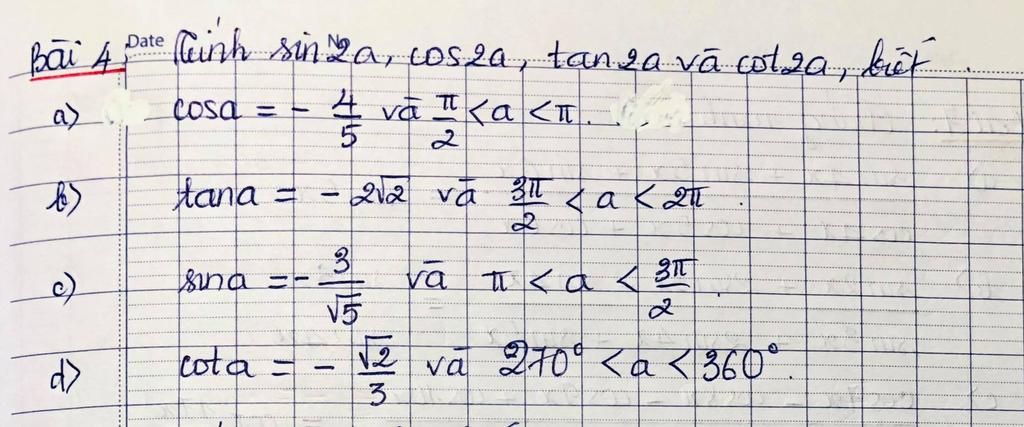 Bài 4: Date No Tính sin2a, cos2a, tan2a và cot2a, biết
a) cosa = - 4/5 và π/2 < a < π.
b) tana = - 2√2 và 3π/2 < a < 2π.
c) sina = - 3/√5 và π < a < 3π/2.
d) cota = - √2/3 và 270° < a < 360°.